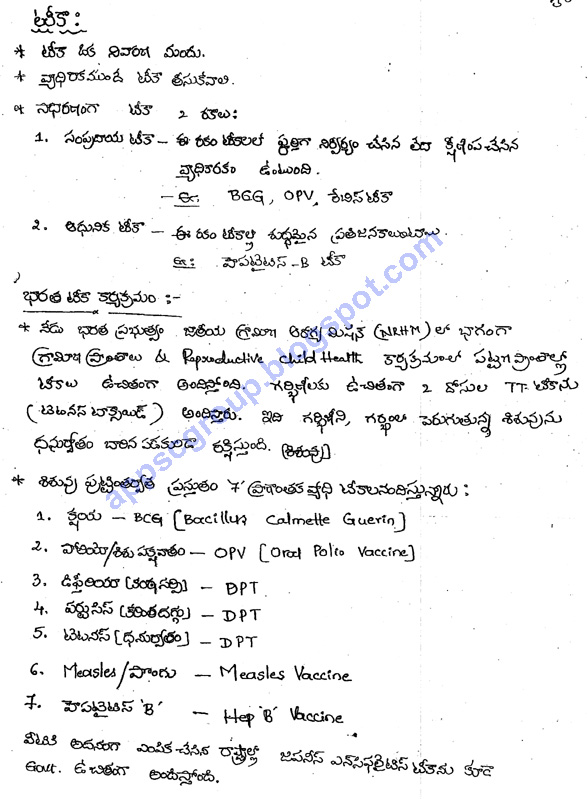 టీకా :
* టీకా ఒక నివారణ మందు.
* వ్యాధిరాకముందే టీకా తీసుకోవాలి.
* సాధారణంగా టీకా 2 రకాలు:
1. సంప్రదాయ టీకా – ఈ రకం టీకాలలో పూర్తిగా నిర్వీర్యం చేసిన లేదా క్షీణింపచేసిన
వ్యాధికారకం ఉంటుంది.
– Ex: BCG, OPV, రేబిస్ టీకా
2. ఆధునిక టీకా – ఈ రకం టీకాల్లో శుద్ధమైన ప్రతిజనకాలుంటాయి.
Ex: హెపటైటిస్ -B టీకా
భారత టీకా కార్యక్రమం :-
* నేడు భారత ప్రభుత్వం జాతీయ గ్రామీణ ఆరోగ్య మిషన్ (NRHM) లో భాగంగా
గ్రామీణ ప్రాంతాలు & Reproductive child Health కార్యక్రమంలో పట్టణ ప్రాంతాల్లో
టీకాలు ఉచితంగా అందిస్తోంది. గర్భిణీలకు ఉచితంగా 2 డోసుల TT టీకాను
(టెటానస్ టాక్సాయిడ్) అందిస్తారు. ఇది గర్భిణీని, గర్భంలో పెరుగుతున్న శిశువును
ధనుర్వాతం బారిన పడకుండా రక్షిస్తుంది. [శిశువు]
* శిశువు పుట్టింతర్వాత ప్రస్తుతం 7 ప్రాణాంతక వ్యాధి టీకాలనందిస్తున్నారు :
1. క్షయ – BCG [Bacillus Calmette Guerin]
2. పోలియో/శిశు పక్షవాతం – OPV [Oral Polio Vaccine]
3. డిఫ్తీరియా (కంఠసర్పి) – DPT
4. పర్టుసిస్ (కోరింతదగ్గు) – DPT
5. టెటానస్ [ధనుర్వాతం] – DPT
6. Measles/పొంగు – Measles Vaccine
7. హెపటైటిస్ 'B' – Hep 'B' Vaccine
వీటికి అదనంగా ఎంపిక చేసిన రాష్ట్రాల్లో జపనీస్ ఎన్‌సెఫలైటిస్ టీకాను కూడా
Govt. ఉచితంగా అందిస్తోంది.
appscgroup.blogspot.com